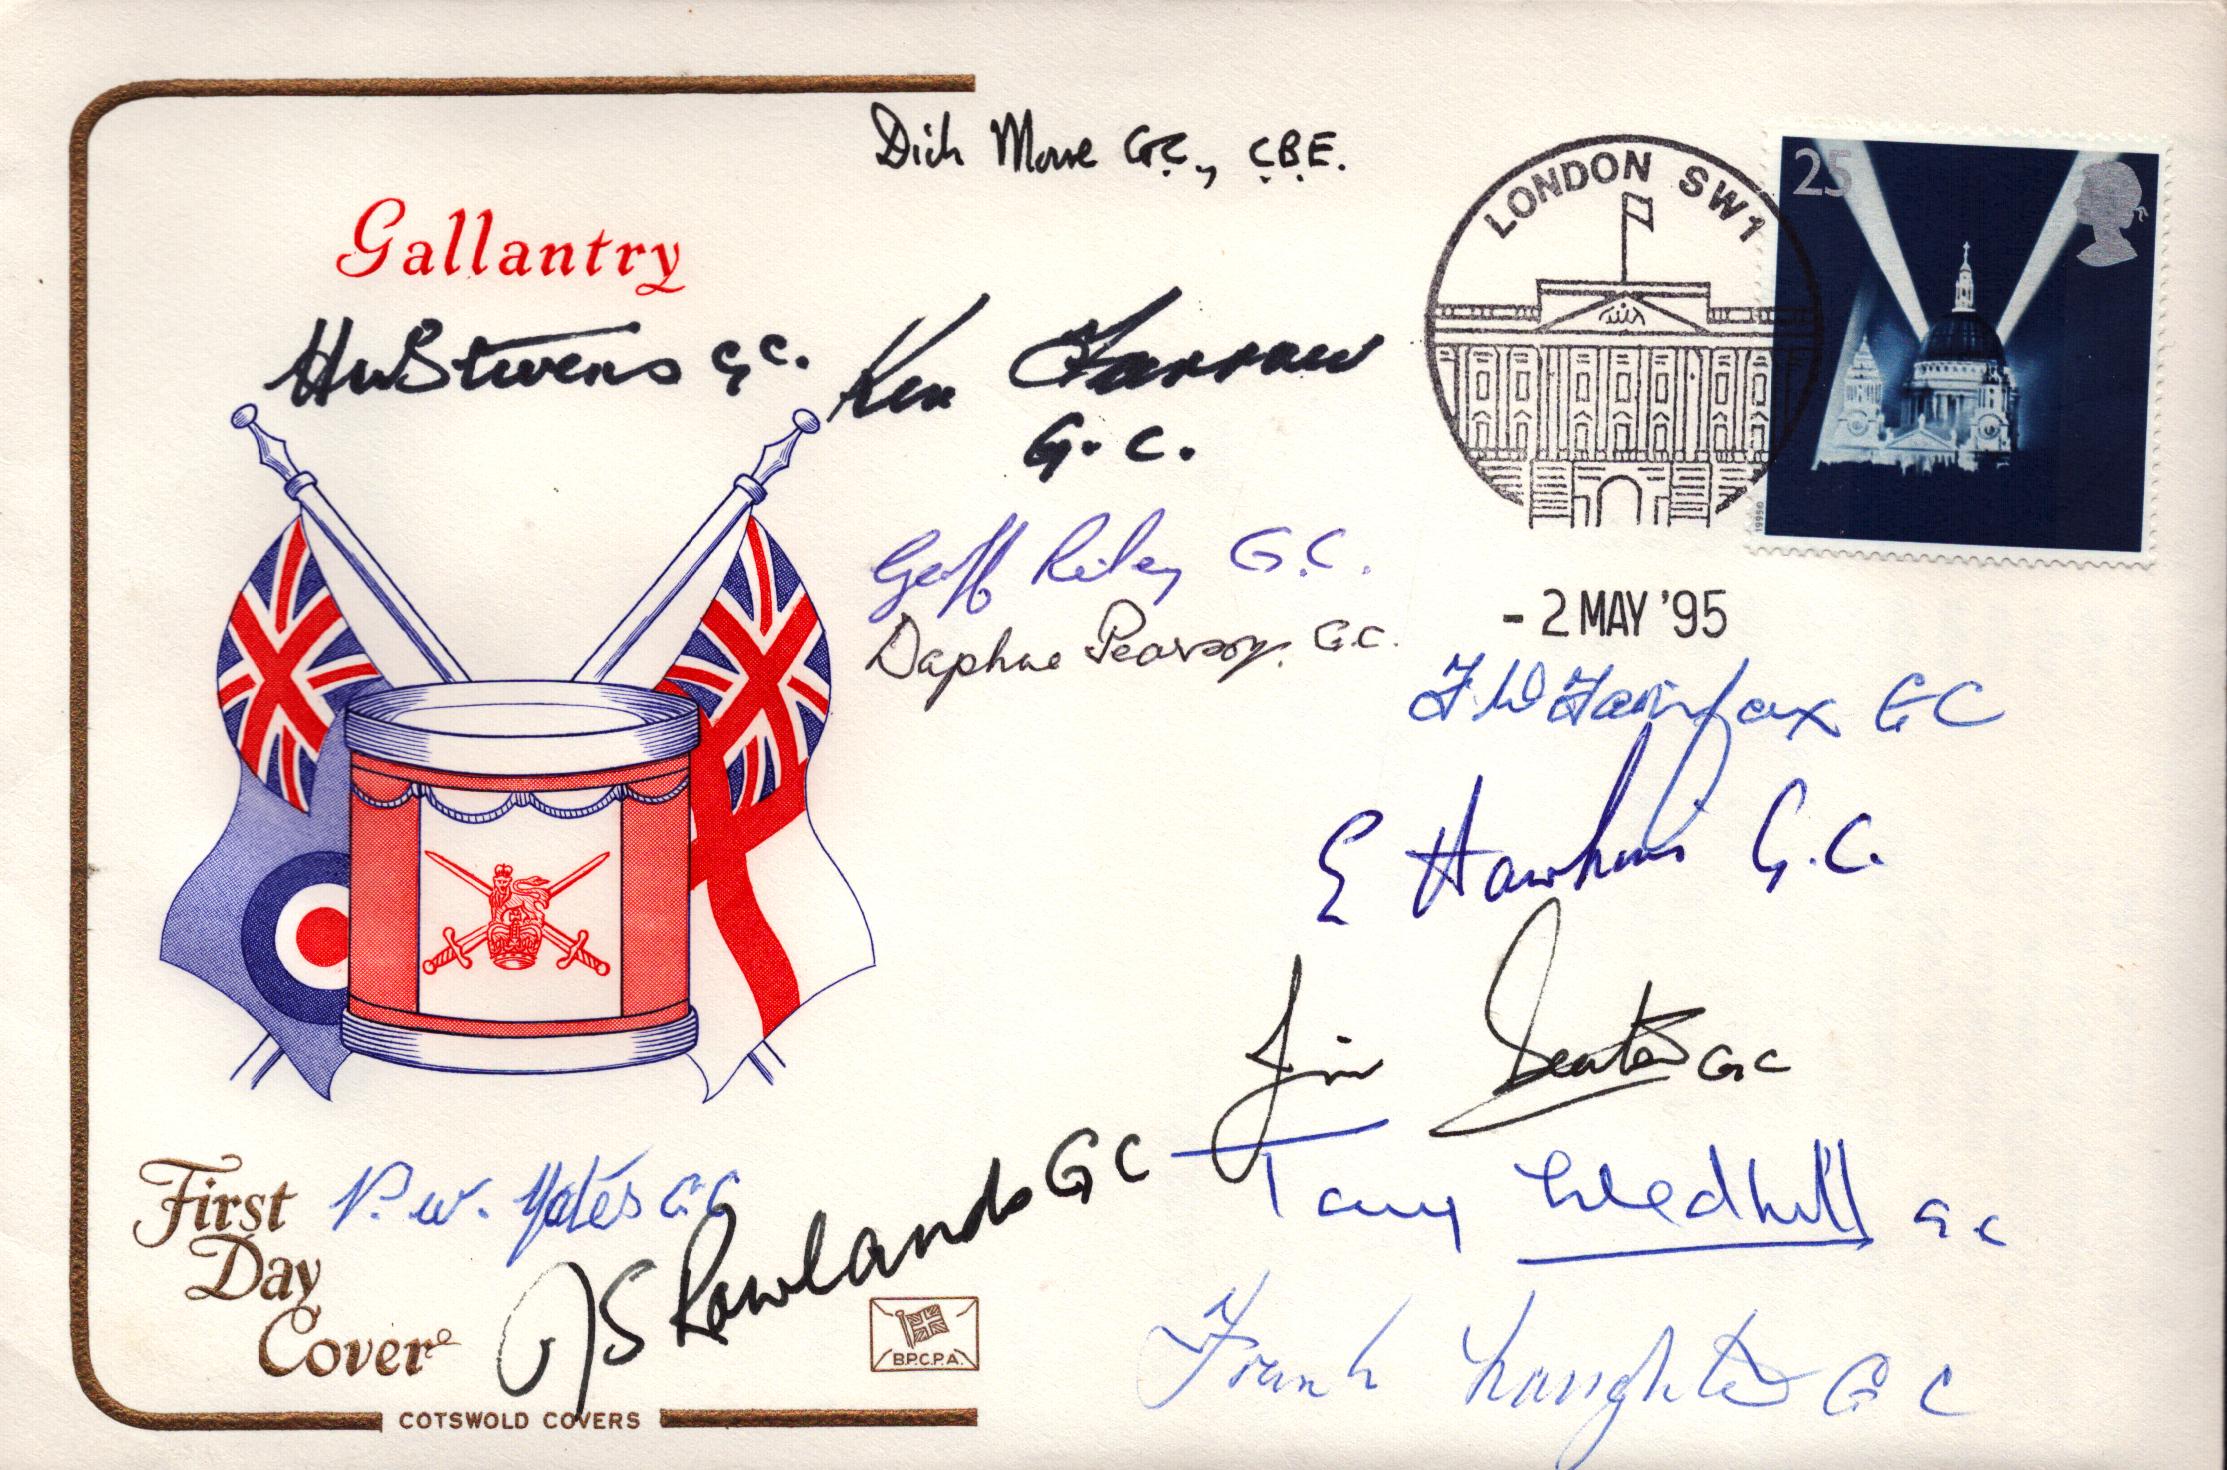 Dick Moore G.C., C.B.E.
LONDON SW1
25
Gallantry
HW Stevens G.C.
Ken Farrow
G.C.
Geoff Riley G.C.
1995
- 2 MAY '95
Daphne Pearson. G.C.
F W Fairfax GC
E Hawkins G.C.
Jim Beaton GC
Tony Gledhill GC
P. W. Yates G.C.
J S Rowlands GC
First
Day
Cover
B.P.C.P.A.
Frank Naughton GC
COTSWOLD COVERS